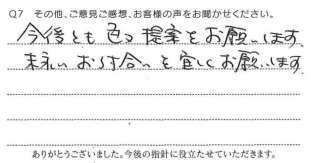 Q7 その他、ご意見ご感想、お客様の声をお聞かせください。
今後とも色々提案をお願いします。
末永いお付合いを宜しくお願いします
ありがとうございました。今後の指針に役立たせていただきます。